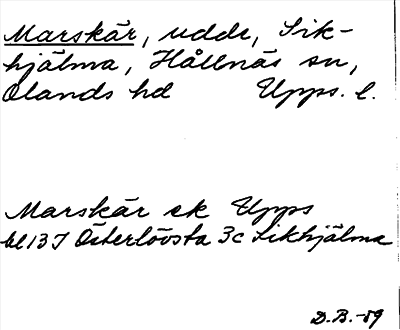 Marskär, udde, Sik-
hjälma, Hållnäs sn,
Olands hd Upps. l.
Marskär ek Upps
bl 13 I Österlövsta 3c Sikhjälma
D.B.-59